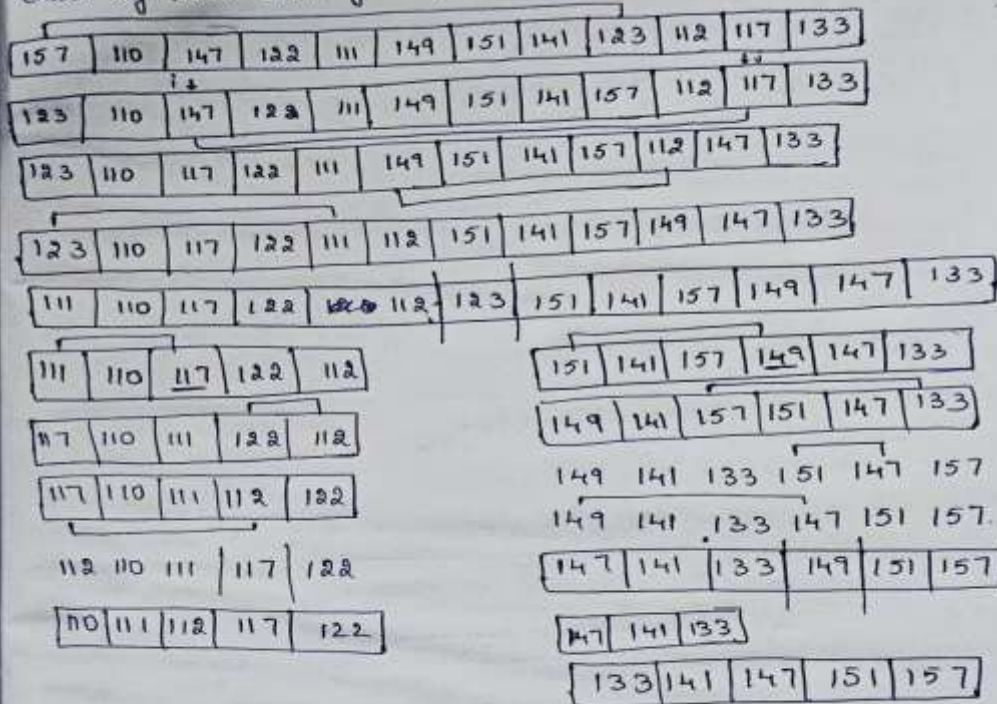 157 110 147 122 111 149 151 141 123 112 117 133
i
123 110 147 122 111 149 151 141 157 112 117 133
123 110 117 122 111 149 151 141 157 112 147 133
123 110 117 122 111 112 151 141 157 149 147 133
111 110 117 122 112 123 151 141 157 149 147 133
111 110 117 122 112
117 110 111 122 112
117 110 111 112 122
112 110 111 117 122
110 111 112 117 122
151 141 157 149 147 133
149 141 157 151 147 133
149 141 133 151 147 157
149 141 133 147 151 157
147 141 133 149 151 157
147 141 133
133 141 147 151 157